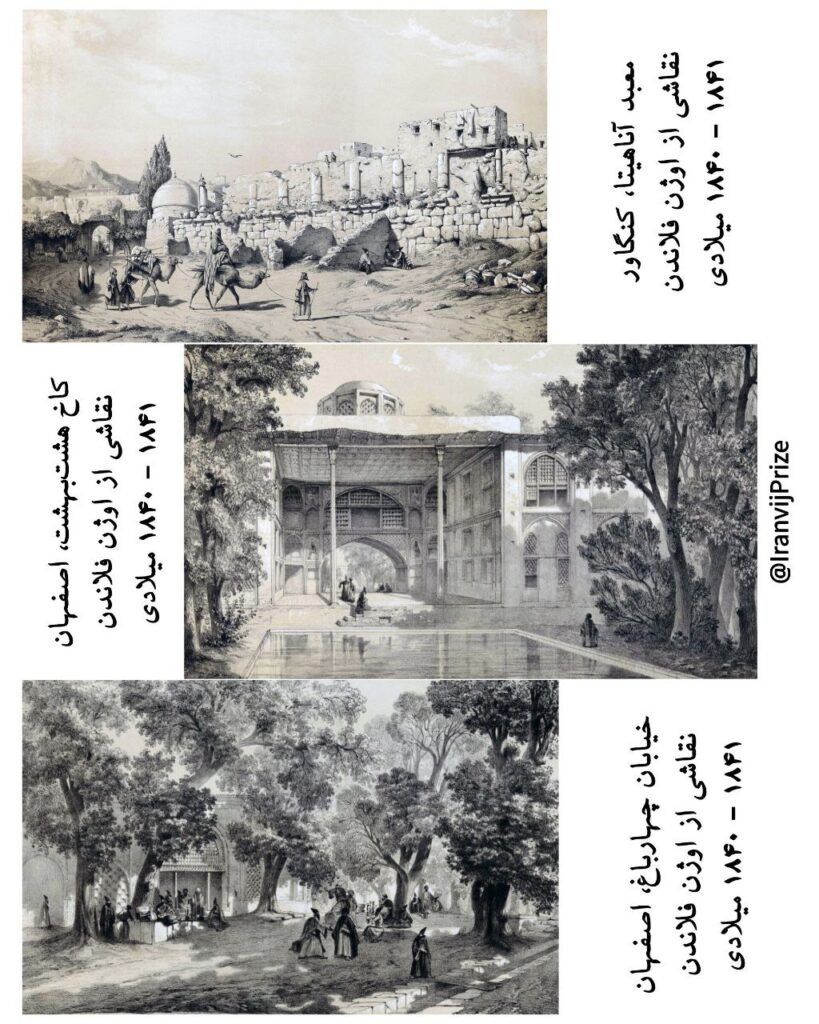 معبد آناهیتا، کنگاور
نقاشی از اوژن فلاندن
۱۸۴۱ - ۱۸۴۰ میلادی
کاخ هشت‌بهشت، اصفهان
نقاشی از اوژن فلاندن
۱۸۴۱ - ۱۸۴۰ میلادی
@IranvijPrize
خیابان چهارباغ، اصفهان
نقاشی از اوژن فلاندن
۱۸۴۱ - ۱۸۴۰ میلادی